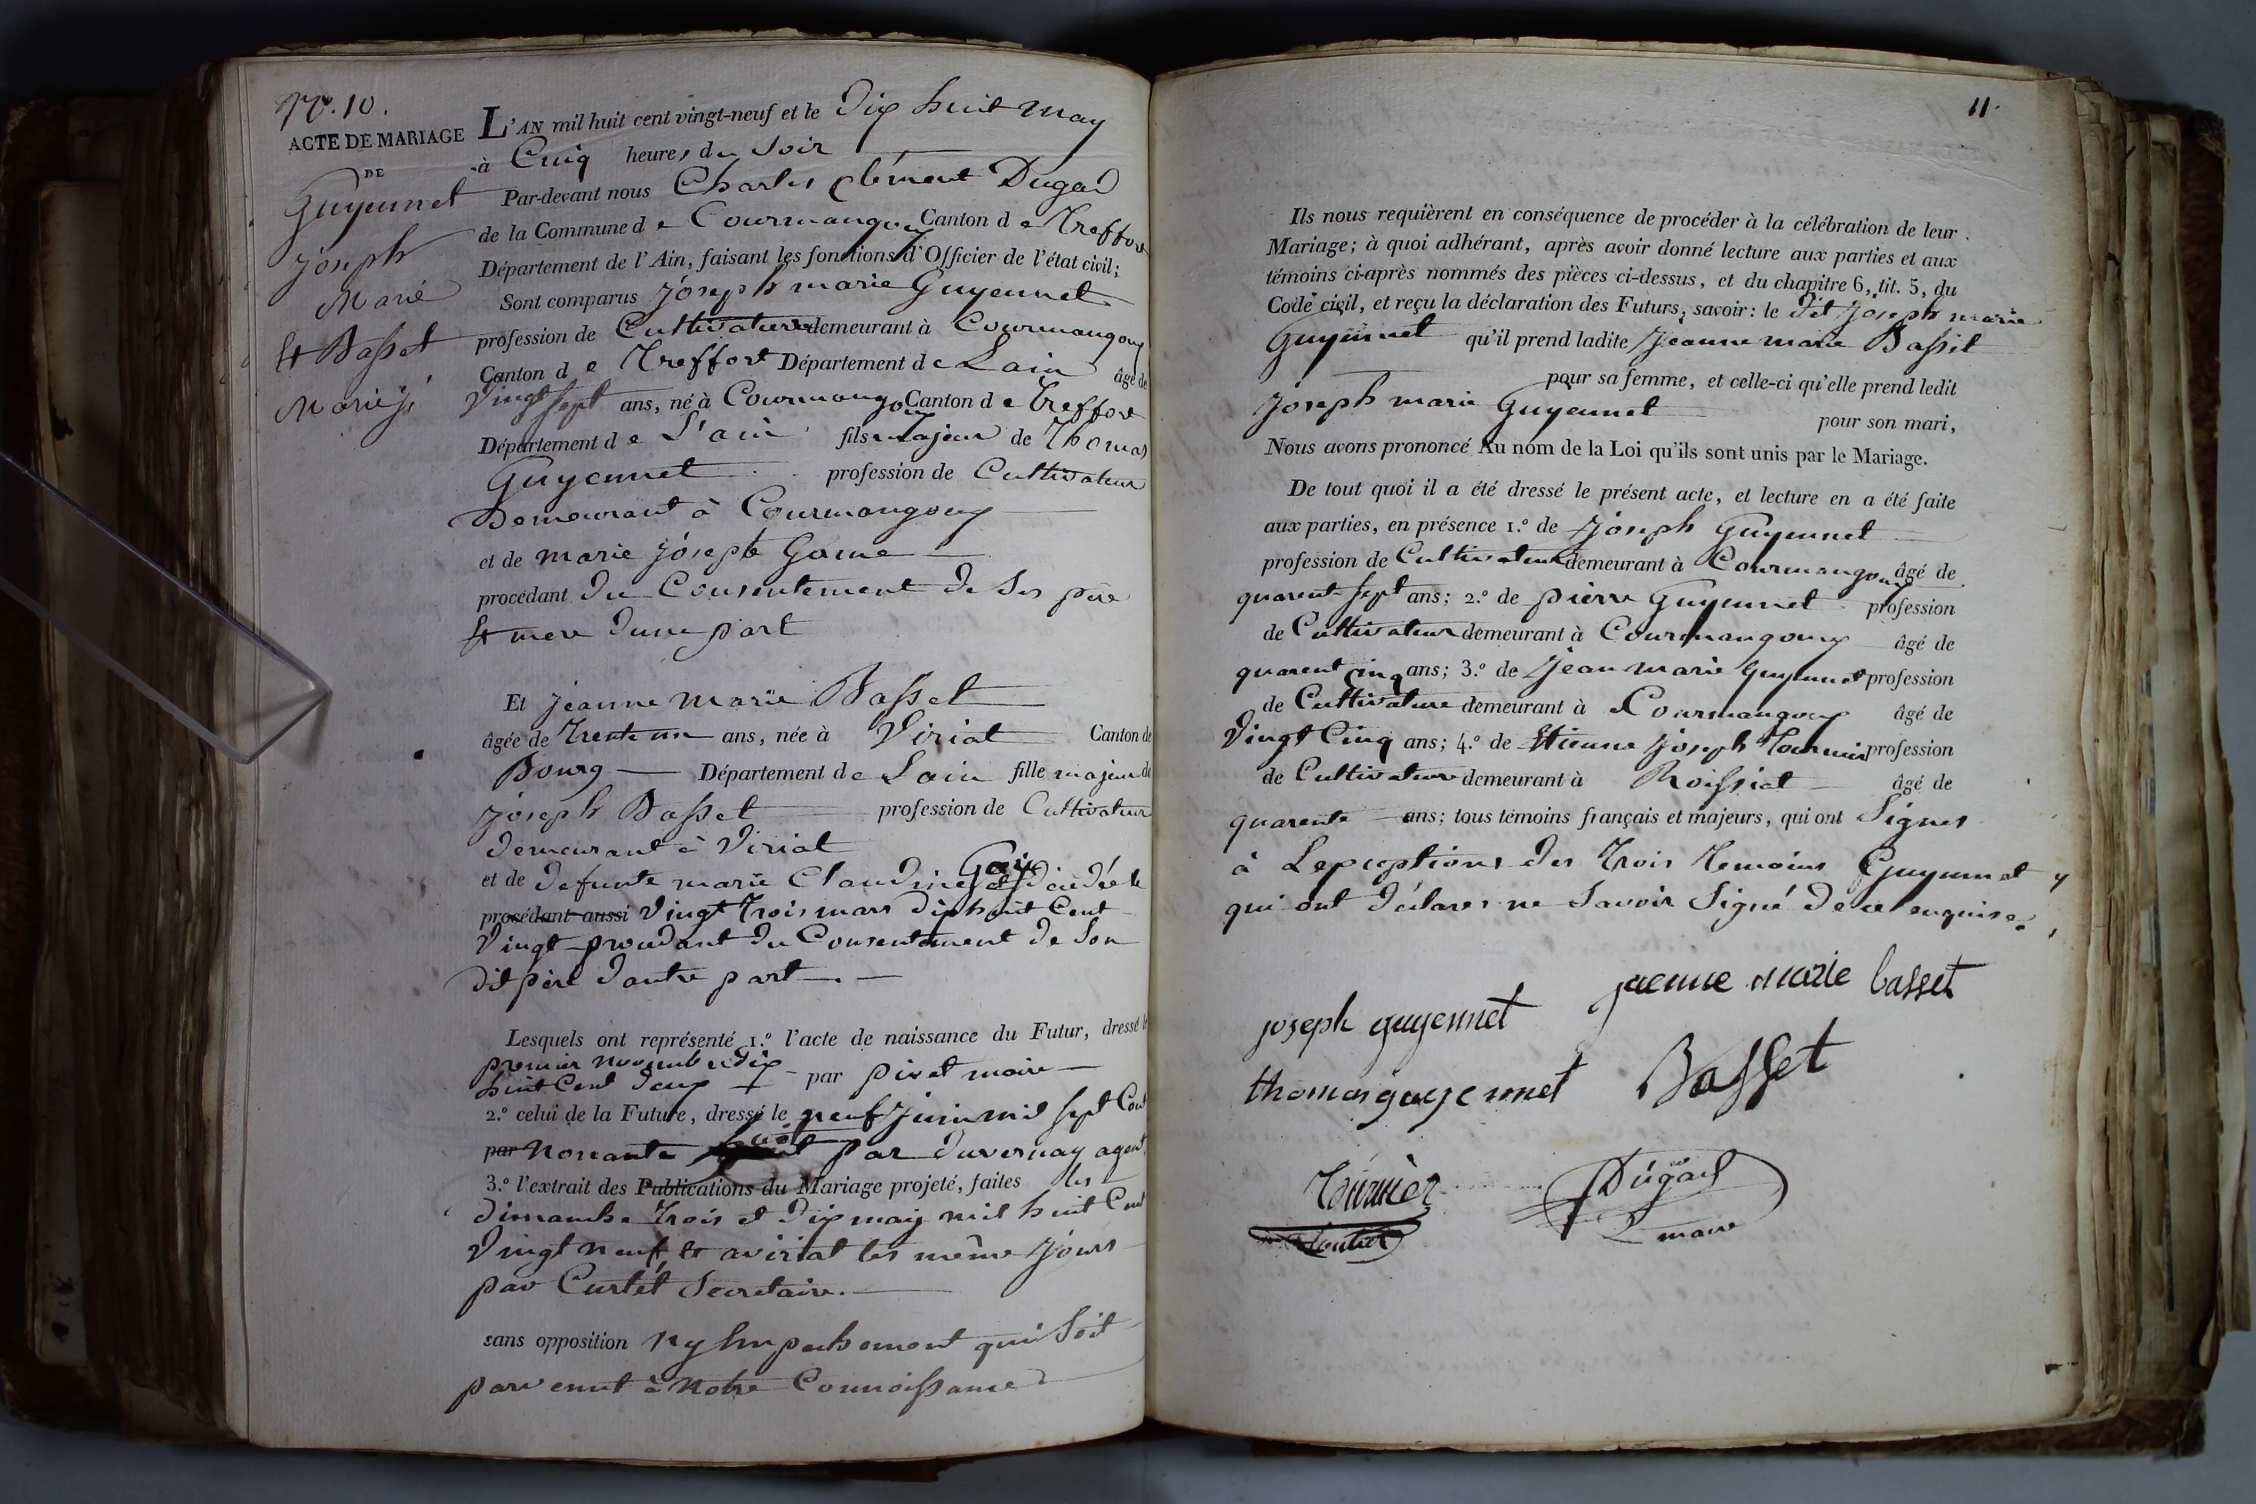 N°. 10.
ACTE DE MARIAGE
DE
Guyennet
Joseph
Marie
Et Basset
Marie j.
L'AN mil huit cent vingt-neuf et le Dix huit may
à Cinq heures du Soir
Par-devant nous Charles Clément Dugad
de la Commune de Courmangoux Canton de Treffort
Département de l'Ain, faisant les fonctions d'Officier de l'état civil;
Sont comparus Joseph marie Guyennet
profession de Cultivateur demeurant à Courmangoux
Canton de Treffort Département de Lain âgé de
Vingt Sept ans, né à Courmangoux Canton de treffort
Département de L'ain fils majeur de Thomas
Guyennet profession de Cultivateur
Demeurant à Courmangoux
et de marie josephe Gome
procédant du Consentement de Ses père
Et mere dune part
Et jeanne marie Basset
âgée de Trente un ans, née à Viriat Canton de
Bourg Département de Lain fille majeur de
joseph Basset profession de Cultivateur
demeurant à Viriat
et de defunte marie Claudine Goix décédée le
procédant aussi Vingt trois mars dix huit Cent
Vingt procedant du Consentement de Son
dit père dautre part
Lesquels ont représenté 1.° l'acte de naissance du Futur, dressé le
premier novembre dix
huit Cent deux par piret maire
2.° celui de la Future, dressé le neuf juin mil Sept Cent
par nonante huit par duvernay agent
3.° l'extrait des Publications du Mariage projeté, faites les
dimanche trois et dix may mil huit Cent
Vingt neuf, et a viriat les même jours
par Curtet Secretaire.
sans opposition ny Empechement qui Soit
parvenut à notre Connoissance
11.
Ils nous requièrent en conséquence de procéder à la célébration de leur
Mariage; à quoi adhérant, après avoir donné lecture aux parties et aux
témoins ci-après nommés des pièces ci-dessus, et du chapitre 6, tit. 5, du
Code civil, et reçu la déclaration des Futurs, savoir: le dit Joseph marie
Guyennet qu'il prend ladite Jeanne marie Basset
pour sa femme, et celle-ci qu'elle prend ledit
joseph marie Guyennet pour son mari,
Nous avons prononcé Au nom de la Loi qu'ils sont unis par le Mariage.
De tout quoi il a été dressé le présent acte, et lecture en a été faite
aux parties, en présence 1.° de Joseph Guyennet
profession de Cultivateur demeurant à Courmangoux âgé de
quarent Sept ans; 2.° de pierre Guyennet profession
de Cultivateur demeurant à Courmangoux âgé de
quarent Cinq ans; 3.° de Jean marie Guyennet profession
de Cultivateur demeurant à Courmangoux âgé de
Vingt Cinq ans; 4.° de Etienne Joseph Tournier profession
de Cultivateur demeurant à Roissiat âgé de
quarente ans; tous témoins français et majeurs, qui ont Signes
à Lexcptions des trois temoins Guyennet
qui ont déclares ne Savoir Signé de ce enquise.
jeanne marie basset
joseph guyennet
thomas guyennet Basset
Tournier
Dugad
maire